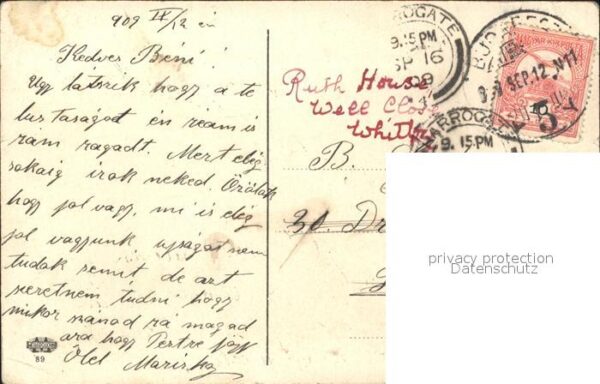 909 IX/12 én
Kedves Béni!
Ugy látszik hogy a te
lustaságod én reám is
rám ragadt. Mert elég
sokáig irok neked. Örülök
hogy jól vagy, mi is elég
jól vagyunk, ujságot nem
tudok semit, de azt
szeretném tudni hogy
mikor szánod rá magad
arra hogy Pestre jösz
Ölel Mariska
89
HARROGATE
9.15 PM
SP 16
09
BUDAPEST
MAGYAR KIR. POSTA
909 SEP. 12
5
Ruth House
Well Close
HARROGATE
9.15 PM
B.
30. Dr
privacy protection
Datenschutz